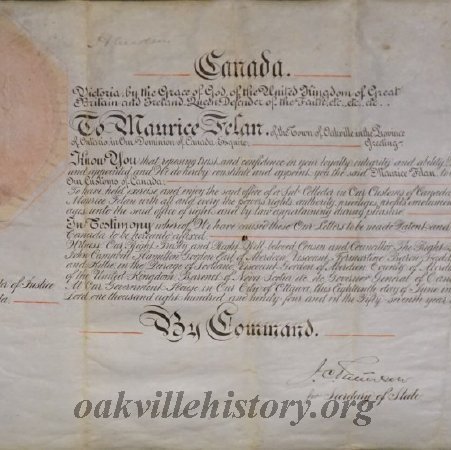 Canada.
Victoria, by the Grace of God, of the United Kingdom of Great
Britain and Ireland, Queen, Defender of the Faith, etc., etc., etc..
To Maurice Felan, of the Town of Oakville in the Province
of Ontario in Our Dominion of Canada, Esquire, Greeting-
Know You that reposing trust and confidence in your loyalty integrity and ability
and appoint you the said Maurice Felan to
Our Customs of Canada.
To have hold exercise and enjoy the said office of a Sub-Collector in Our Customs of Canada
Maurice Felan with all and every the powers rights authority privileges profits emoluments
unto the said office of right and by law appertaining during pleasure
In Testimony whereof We have caused these Our Letters to be made Patent and
Canada to be hereunto
Witness Our Right Trusty and Right Well beloved Cousin and Councillor The Right
John Campbell Hamilton Gordon Earl of Aberdeen, Viscount Formartine, Baron
in the Peerage of Scotland, Viscount Gordon of Aberdeen County of
of the United Kingdom, Baronet of Nova Scotia etc. Governor General of Canada
At Our Government House in Our City of Ottawa, this Eighteenth day of June in
Lord one thousand eight hundred and ninety four and in the Fifty seventh year
ter of Justice
ada.
By Command.
Secretary of State
oakvillehistory.org